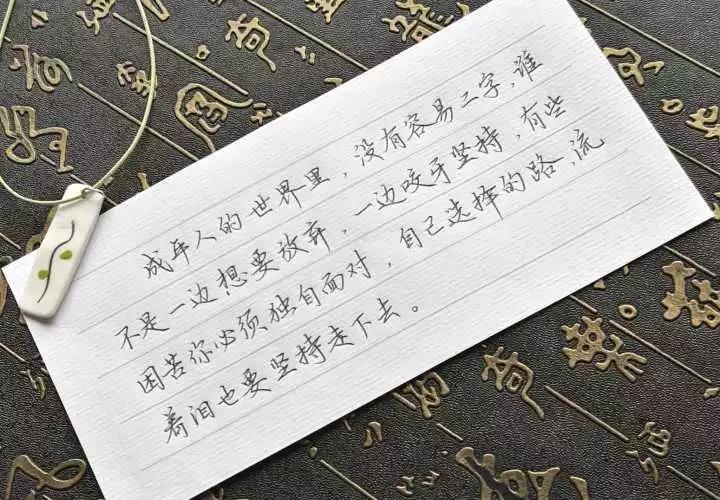 成年人的世界里，没有容易二字，谁
不是一边想要放弃，一边咬牙坚持，有些
困苦你必须独自面对，自己选择的路，流
着泪也要坚持走下去。